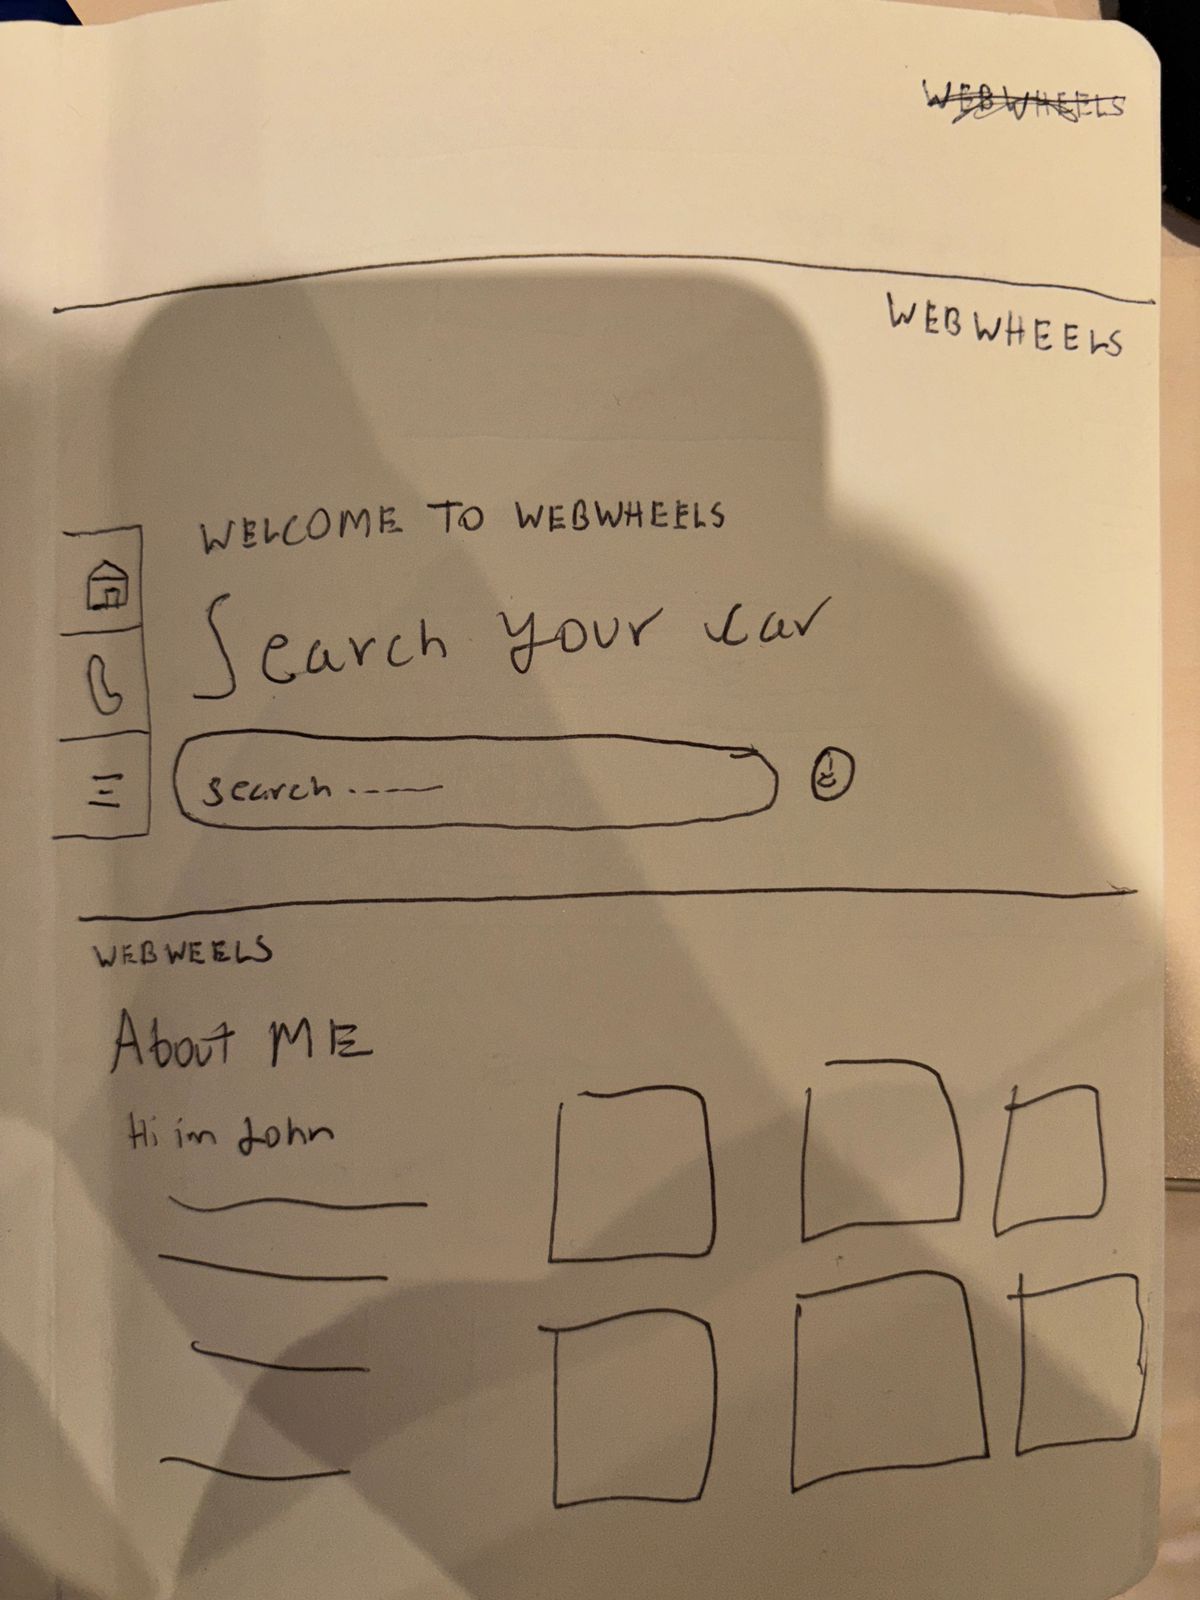 WEBWHEELS
WEBWHEELS
WELCOME TO WEBWHEELS
Search your car
search......
WEBWEELS
About ME
Hi im John